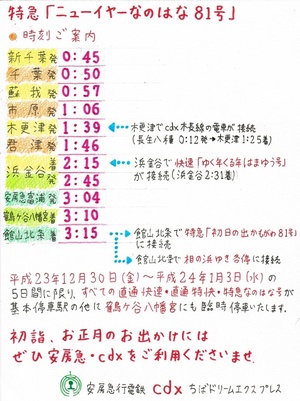 特急「ニューイヤーなのはな81号」
時刻ご案内
新千葉発 0:45
千葉発 0:50
蘇我発 0:57
市原発 1:06
木更津発 1:39 木更津でcdx本長線の電車が接続
(長生八積 0:12発→木更津1:25着)
君津発 1:46
浜金谷着 2:15 浜金谷で快速「ゆく年くる年はまゆう号」
浜金谷発 2:45 が接続(浜金谷2:31着)
安房急富浦発 3:04
鶴ケ谷八幡宮着 3:10
館山北条着 3:15 館山北条で特急「初日の出かもがわ81号」
に接続
館山北条で相の浜ゆき各停に接続
平成23年12月30日(金)〜平成24年1月3日(水)の
5日間に限り、すべての直通快速・直通特快・特急なのはなが
基本停車駅の他に鶴ケ谷八幡宮にも臨時停車いたします。
初詣、お正月のお出かけには
ぜひ安房急・cdxをご利用くださいませ。
安房急行電鉄 cdx ちばドリームエクスプレス